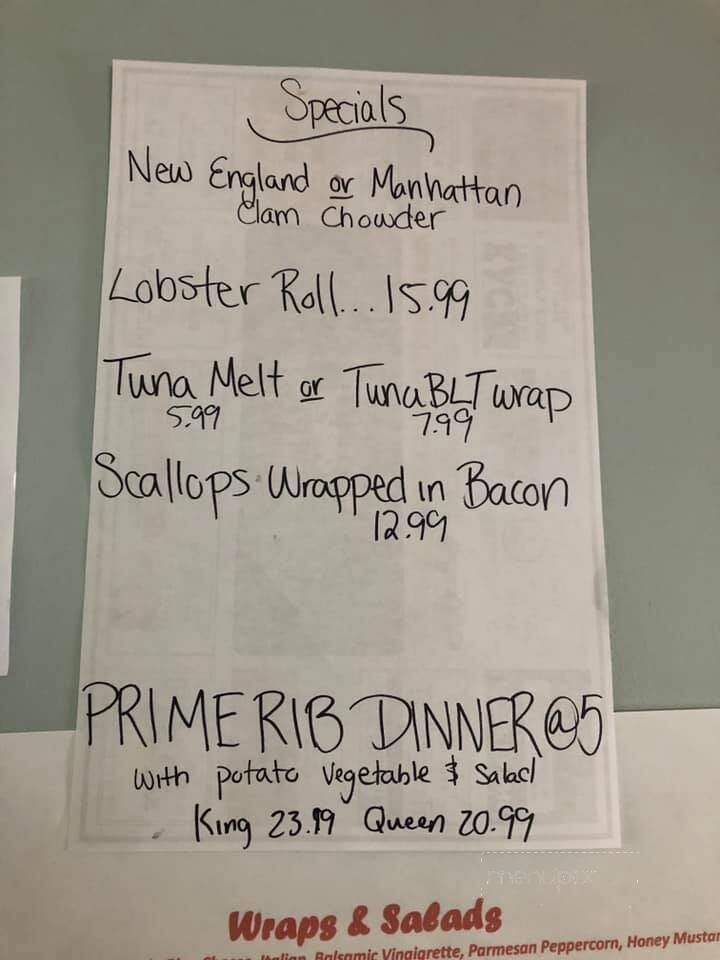 Specials
New England or Manhattan
Clam Chowder
Lobster Roll... 15.99
Tuna Melt or Tuna BLT wrap
5.99 7.99
Scallops Wrapped in Bacon
12.99
PRIME RIB DINNER @5
with potato vegetable & Salad
King 23.99 Queen 20.99
menupix
Wraps & Salads
Italian, Balsamic Vinaigrette, Parmesan Peppercorn, Honey Mustar